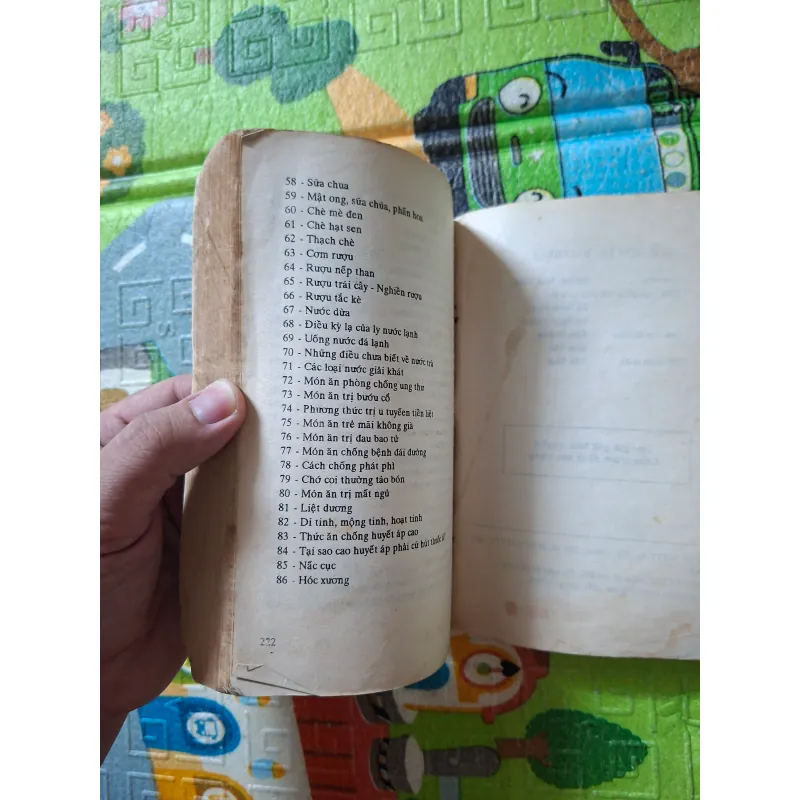 58 - Sữa chua
59 - Mật ong, sữa chúa, phấn hoa
60 - Chè mè đen
61 - Chè hạt sen
62 - Thạch chè
63 - Cơm rượu
64 - Rượu nếp than
65 - Rượu trái cây - Nghiền rượu
66 - Rượu tắc kè
67 - Nước dừa
68 - Điều kỳ lạ của ly nước lạnh
69 - Uống nước đá lạnh
70 - Những điều chưa biết về nước trà
71 - Các loại nước giải khát
72 - Món ăn phòng chống ung thư
73 - Món ăn trị bướu cổ
74 - Phương thức trị u tuyếen tiền liệt
75 - Món ăn trẻ mãi không già
76 - Món ăn trị đau bao tử
77 - Món ăn chống bệnh đái đường
78 - Cách chống phát phì
79 - Chớ coi thường táo bón
80 - Món ăn trị mất ngủ
81 - Liệt dương
82 - Di tinh, mộng tinh, hoạt tinh
83 - Thức ăn chống huyết áp cao
84 - Tại sao cao huyết áp phải cữ hút thuốc
85 - Nấc cục
86 - Hóc xương
222